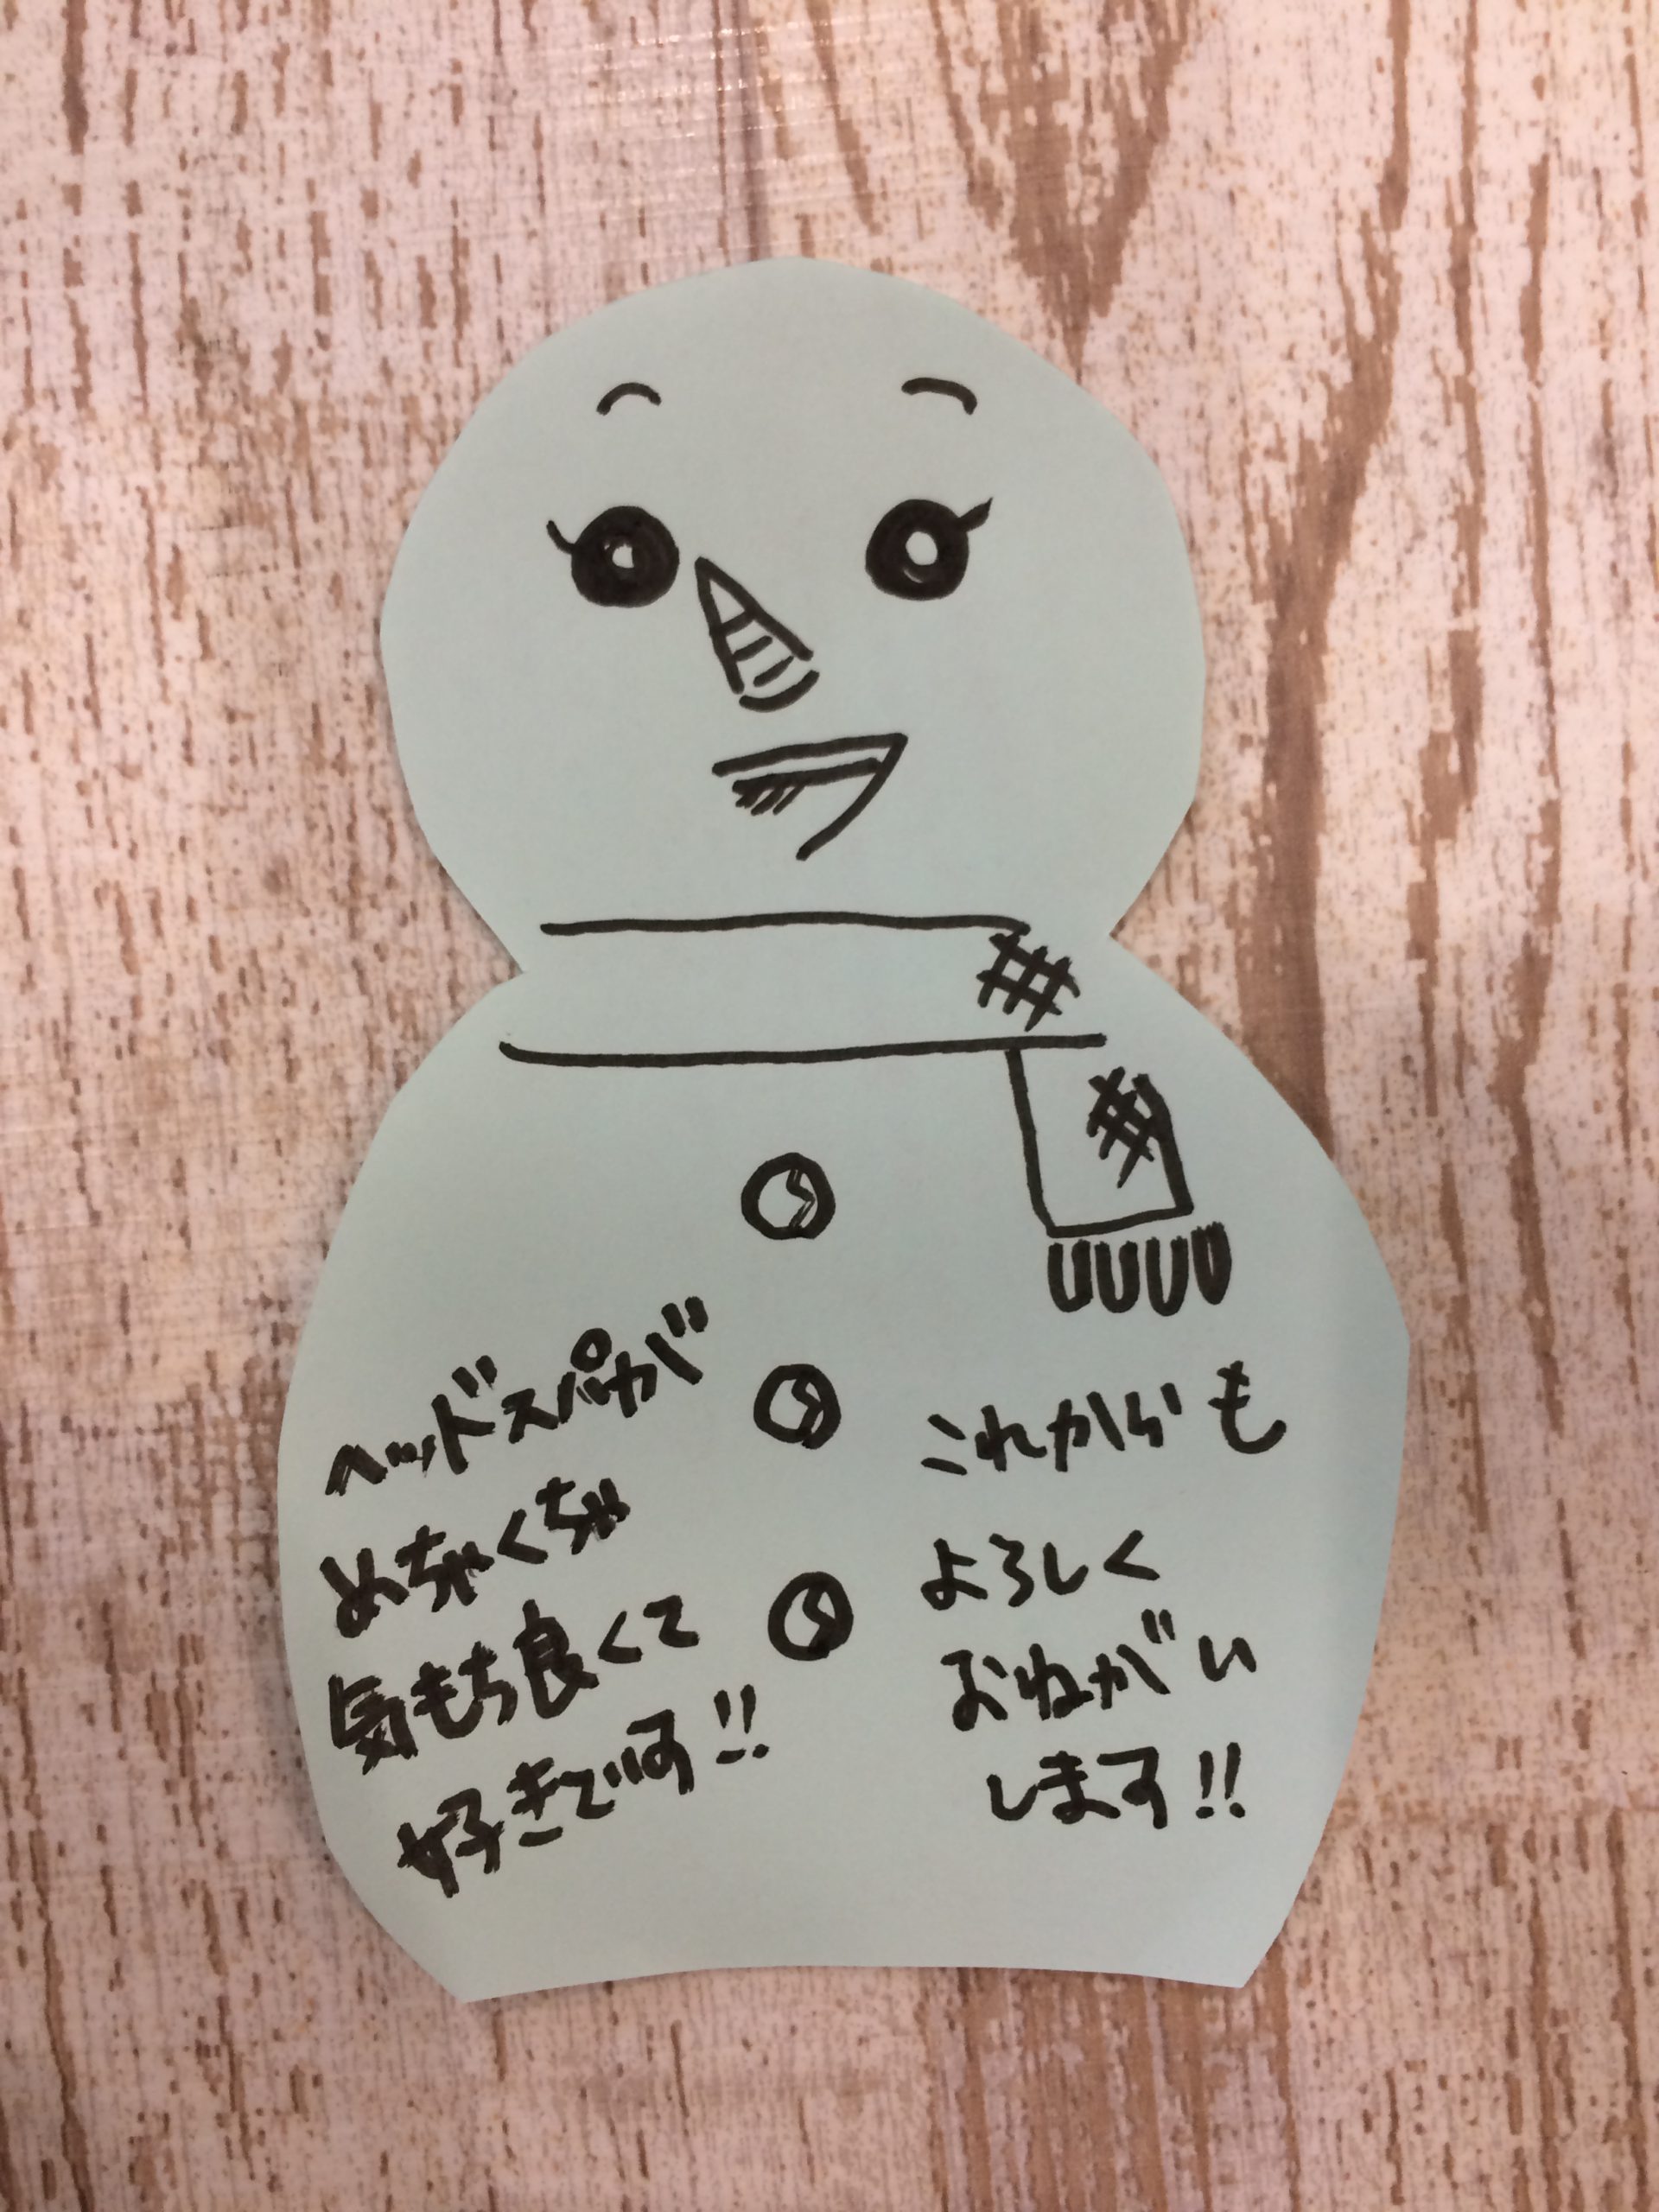 ヘッドスパが
めちゃくちゃ
気もち良くて
好きです!!
これからも
よろしく
おねがい
します!!